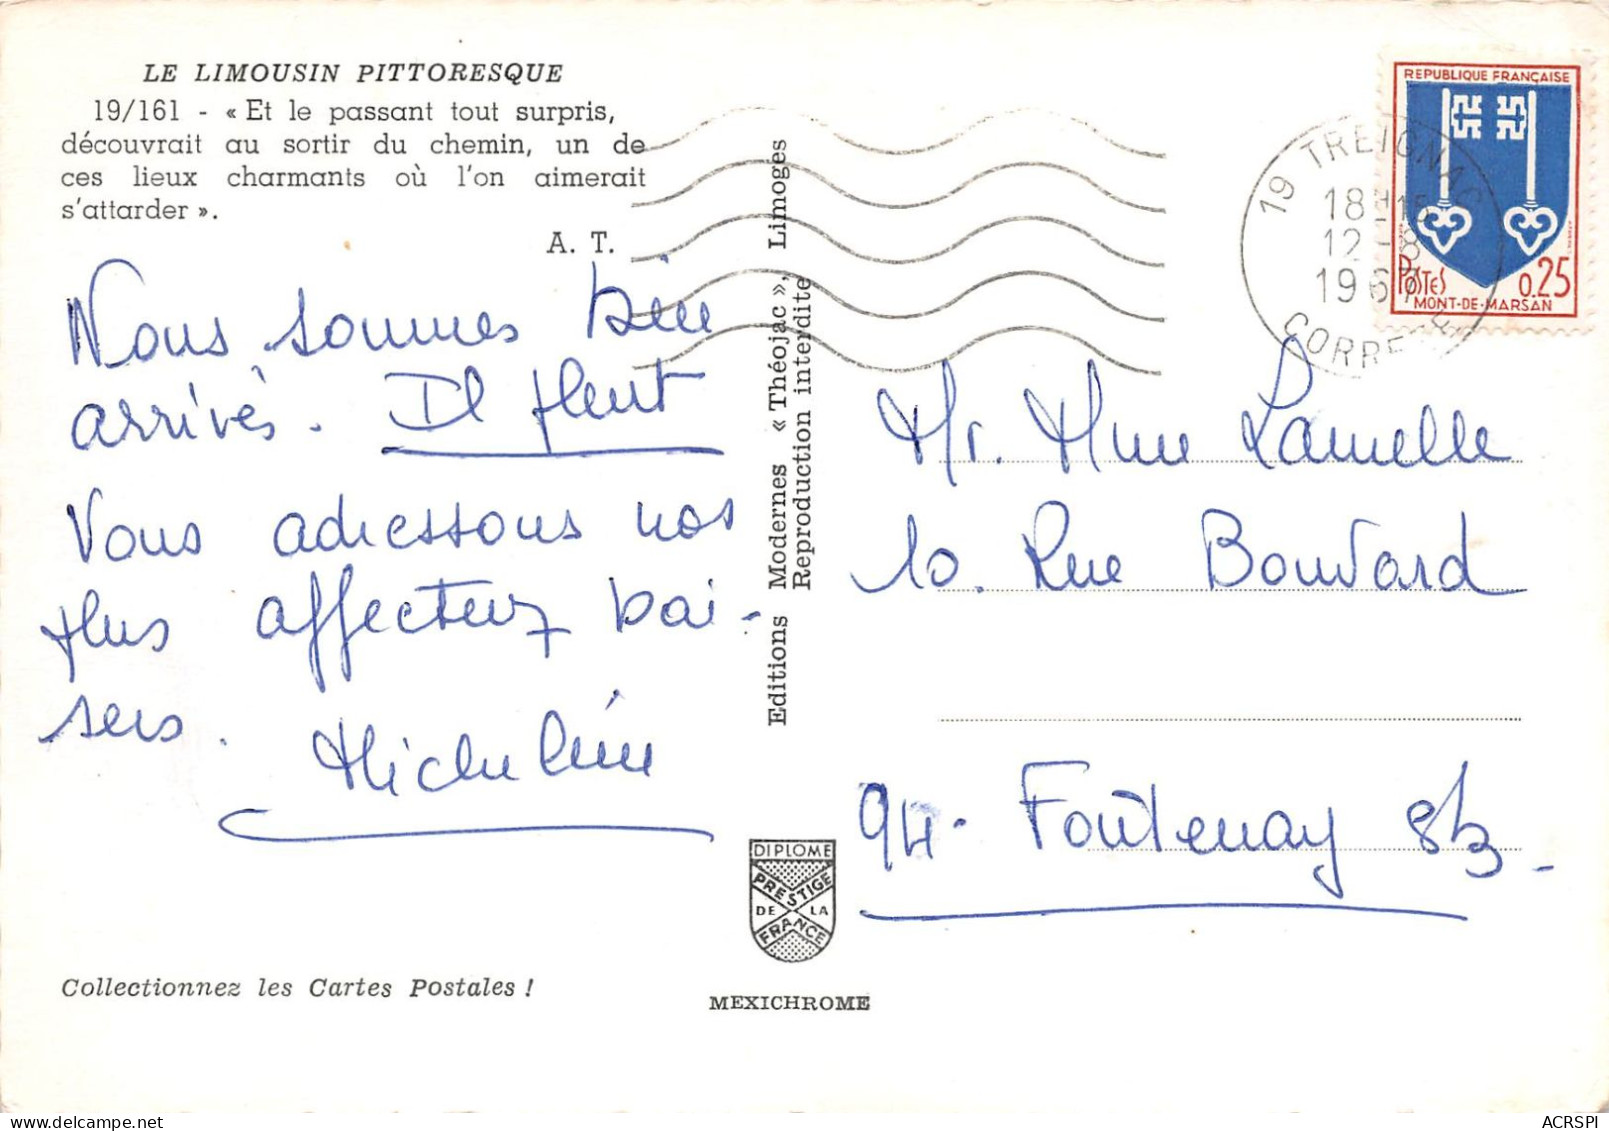 LE LIMOUSIN PITTORESQUE
19/161 - « Et le passant tout surpris,
découvrait au sortir du chemin, un de
ces lieux charmants où l'on aimerait
s'attarder ».
A. T.
Nous sommes bien
arrivés. Il pleut
Vous adressons nos
plus affectueux bai-
sers.
Micheline
Collectionnez les Cartes Postales !
Editions Modernes « Théojac », Limoges
Reproduction interdite
DIPLOME
PRESTIGE
DE LA
FRANCE
MEXICHROME
REPUBLIQUE FRANÇAISE
POSTES 0.25
MONT-DE-MARSAN
19 TREIGNAC
18H15
12-8
196
CORREZE
Mr. Mme Lamelle
10. Rue Bouvard
94. Fontenay s/s
ACRSPI